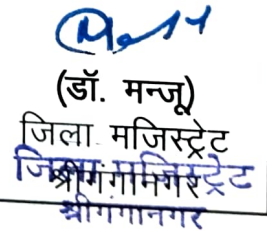 (डॉ. मन्जू)
जिला मजिस्ट्रेट
श्रीगंगानगर
जिला मजिस्ट्रेट
श्रीगंगानगर